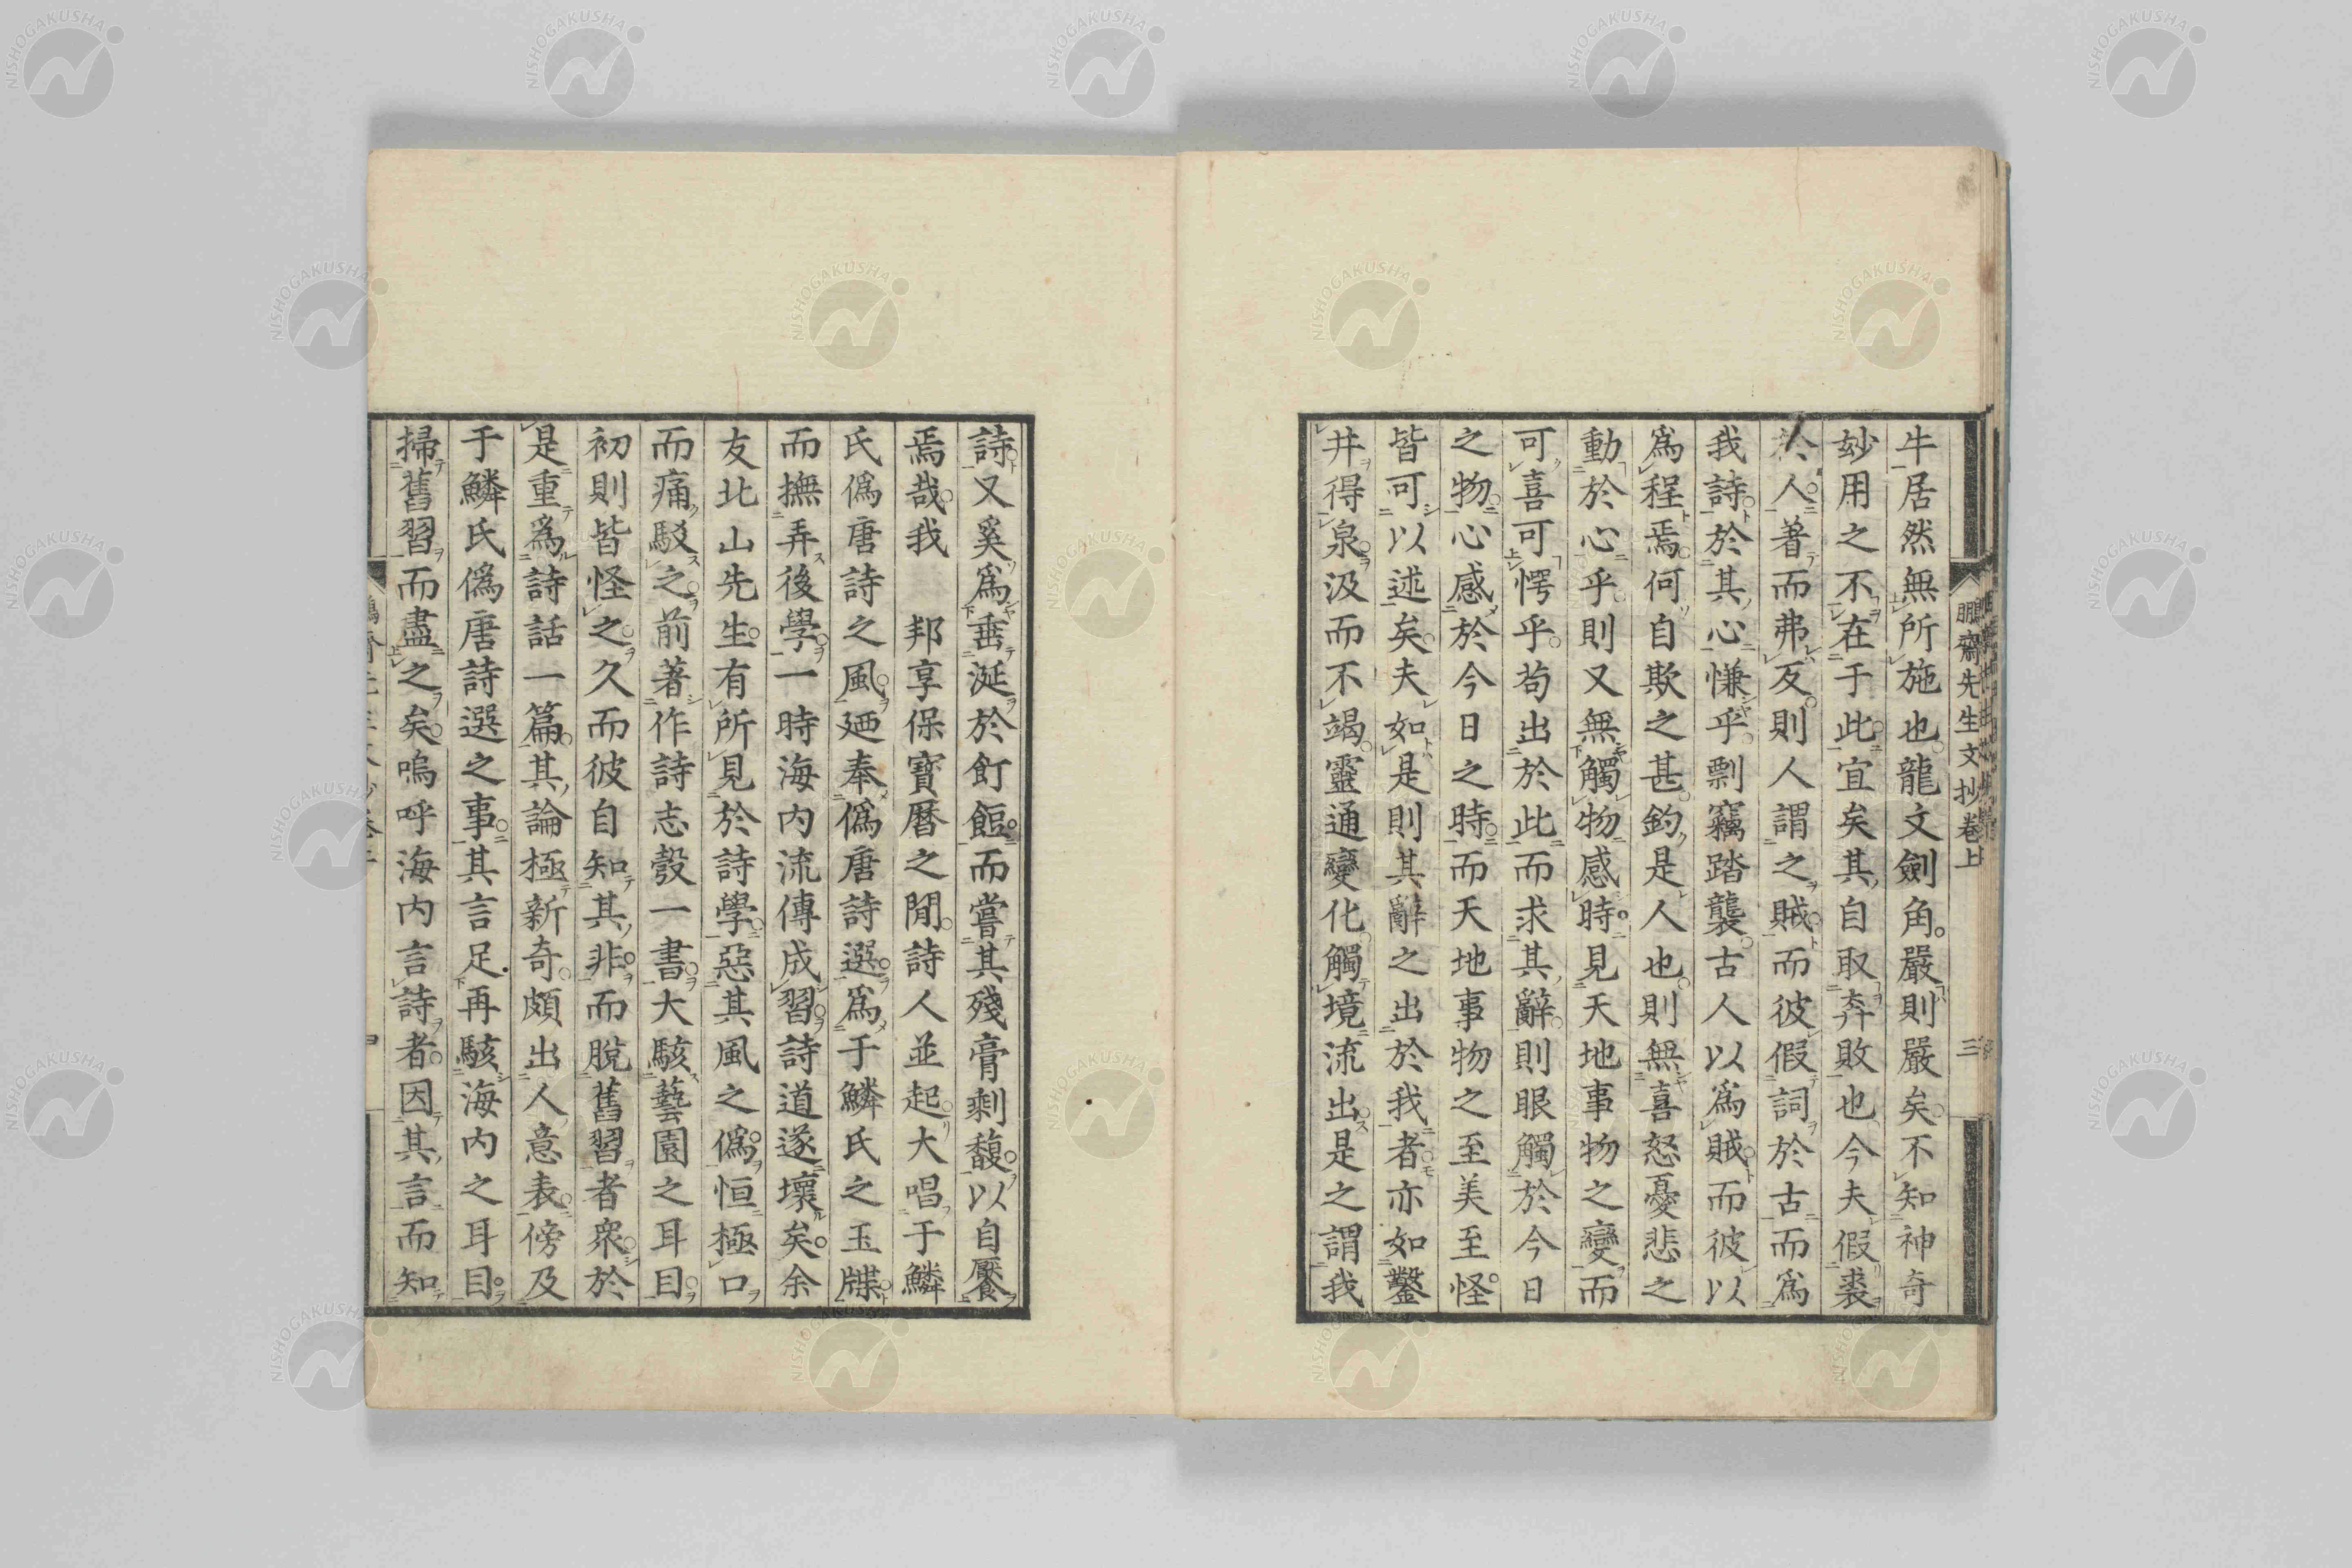 牛居然無所施也龍文劍角嚴則嚴矣不知神奇
妙用之不在于此宜矣其自取奔敗也今夫假裘
於人著而弗反則人謂之賊而彼假詞於古而爲
我詩於其心慊乎剽竊踏襲古人以爲賊而彼以
爲程焉何自欺之甚鈞是人也則無喜怒憂悲之
動於心乎則又無觸物感時見天地事物之變而
可喜可愕乎苟出於此而求其辭則眼觸於今日
之物心感於今日之時而天地事物之至美至怪
皆可以述矣夫如是則其辭之出於我者亦如鑿
井得泉汲而不竭靈通變化觸境流出是之謂我
鵬齋先生文抄卷上
三
詩又奚爲垂涎於飣餖而嘗其殘膏剩馥以自饜
焉哉我 邦享保寶曆之閒詩人並起大唱于鱗
氏僞唐詩之風廼奉僞唐詩選爲于鱗氏之玉牒
而撫弄後學一時海内流傳成習詩道遂壞矣余
友北山先生有所見於詩學惡其風之僞恒極口
而痛駁之前著作詩志彀一書大駭藝園之耳目
初則皆怪之久而彼自知其非而脫舊習者衆於
是重爲詩話一篇其論極新奇頗出人意表傍及
于鱗氏僞唐詩選之事其言足再駭海内之耳目
掃舊習而盡之矣嗚呼海内言詩者因其言而知
NISHOGAKUSHA